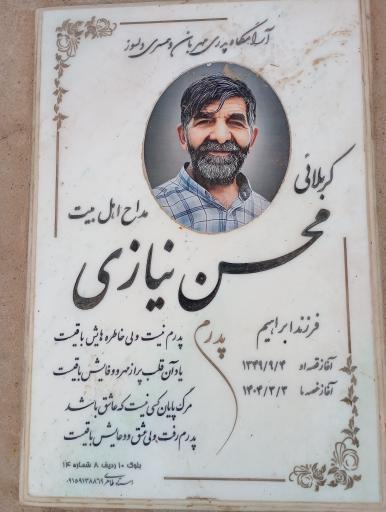 آرامگاه پدری مهربان و همسری دلسوز
کربلائی
مداح اهل بیت
محسن نیازی
فرزند ابراهیم
آغاز قصه ۱۳۴۹/۹/۴
آغاز غصه ما ۱۴۰۴/۳/۳
پدرم
پدرم نیست ولی خاطره هایش باقیست
یاد آن قلب پر از مهر و وفایش باقیست
مرگ پایان کسی نیست که عاشق باشد
پدرم رفت ولی عشق و دعایش باقیست
بلوک ۱۰ ردیف ۸ شماره ۱۴
۰۹۱۵۹۱۳۸۸۶۹